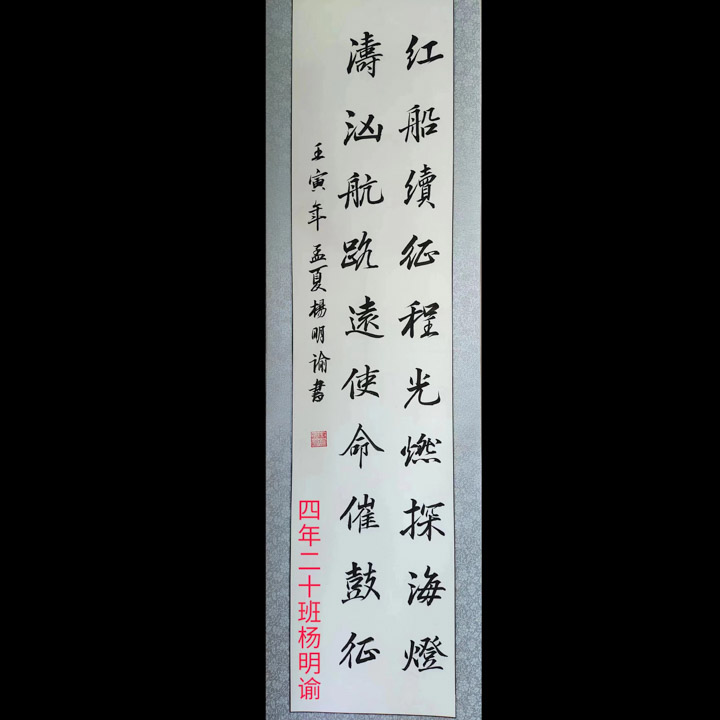 红船續征程光燃探海燈
濤汹航路遠使命催鼓征
壬寅年孟夏楊明谕書
四年二十班杨明谕